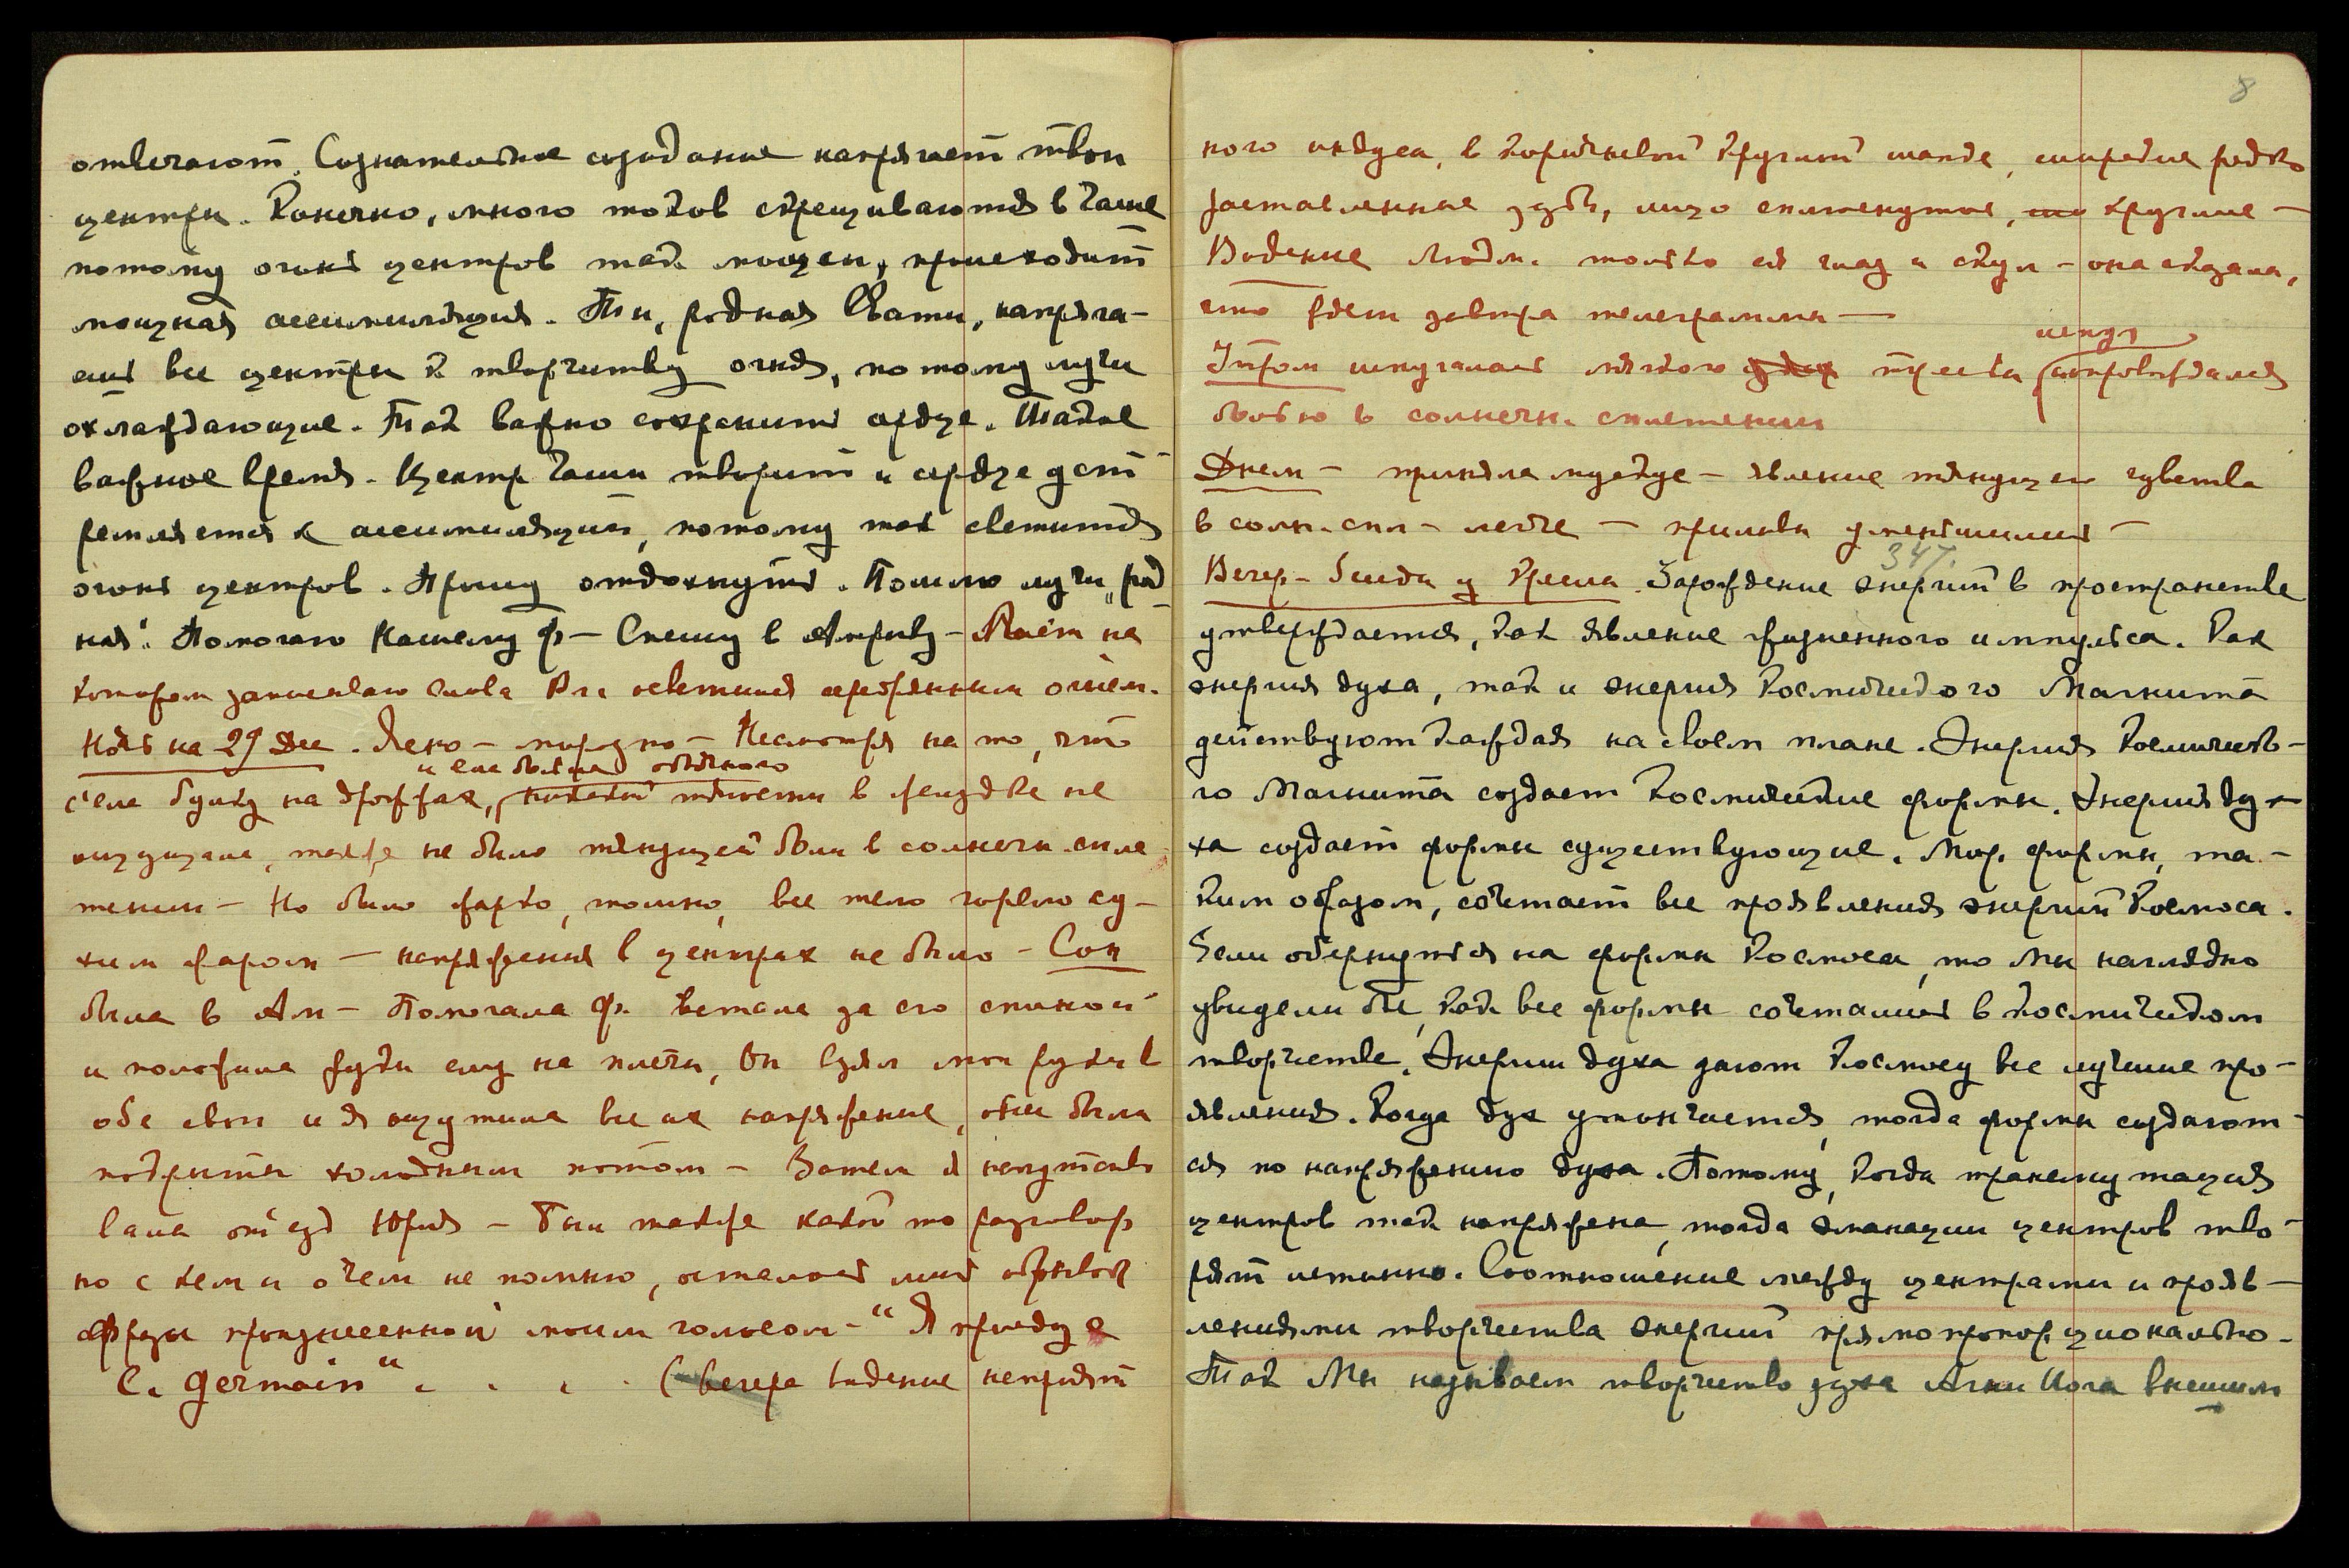 отвечают. Сознательное созидание напрягает твои
центры. Конечно, много токов скрещиваются в Чаше
потому огонь центров так мощен, происходит
мощная ассимиляция. Ты, родная Свати, напряга-
ешь все центры к творчеству огня, потому лучи
охлаждающие. Так важно сохранить сердце. Такое
важное время. Центр Чаши творит и сердце уст
ремляется к ассимиляции, потому так светится
огонь центров. Прошу отдохнуть. Пошлю лучи, „род
ная“. Помогаю Нашему Ф – Спешу в Америку – Лист на
котором записываю слова Вл. осветился серебрянным огнём.
Ночь на 29 Дек. Ясно – морозно – Несмотря на то, что
и ела больше обычного
с'ела булку на дрожжах, никакой тяжести в желудке не
ощущала, также не было тянущей боли в солнечн. спле
тении – Но было жарко, томно, все тело горело су-
хим жаром – напряжения в центрах не было – Сон
была в Ам – Помогала Ф. встала за его спиной
и положила руки ему на плечи, Он взял мои руки в
обе свои и я ощутила все их напряжение, они были
покрыты холодным потом – Затем я
вала от'езд Юрия – Был также какой то разговор
но с кем и о чем не помню, осталось лишь обрывок
фразы произнесенной моим голосом – “Я приеду с
С. Germain“ . . . . (вечера видение неприят

8
ного индуса, в коричневой круглой шапке, широкие редко
расставленные зубы, лицо сплюснутое, круглое –
Видение Людм. только её глаз и скул – она сказала,
что будет завтра телеграмма —
испуг
Утром испугалась мягкого треска сопровождался
болью в солнечн. сплетении
Днем – приняла мускус – явление тянущего чувства
в солн. спл – легче – приливы уменьшились –
347.
Вечер – беседа у Кресла. Зарождение энергий в пространстве
утверждается, как явление жизненного импульса. Как
энергия духа, так и энергия Космического Магнита
действуют каждая на своем плане. Энергия Космическо-
го Магнита создает Космические формы. Энергия ду-
ха создает формы существующие. Мир формы, та-
ким образом, сочетает все проявления энергий Космоса.
Если обернуться на формы Космоса, то мы наглядно
увидели бы, как все формы сочетались в космическом
творчестве. Энергии духа дают Космосу все лучшие про-
явления. Когда дух утончается, тогда формы создают-
ся по напряжению духа. Потому, когда трансмутация
центров так напряжена, тогда эманации центров тво-
рят истинно. Соотношение между центрами и прояв-
лениями творчества энергий прямо пропорционально.
Так Мы называем творчество духа Агни Йога внешим